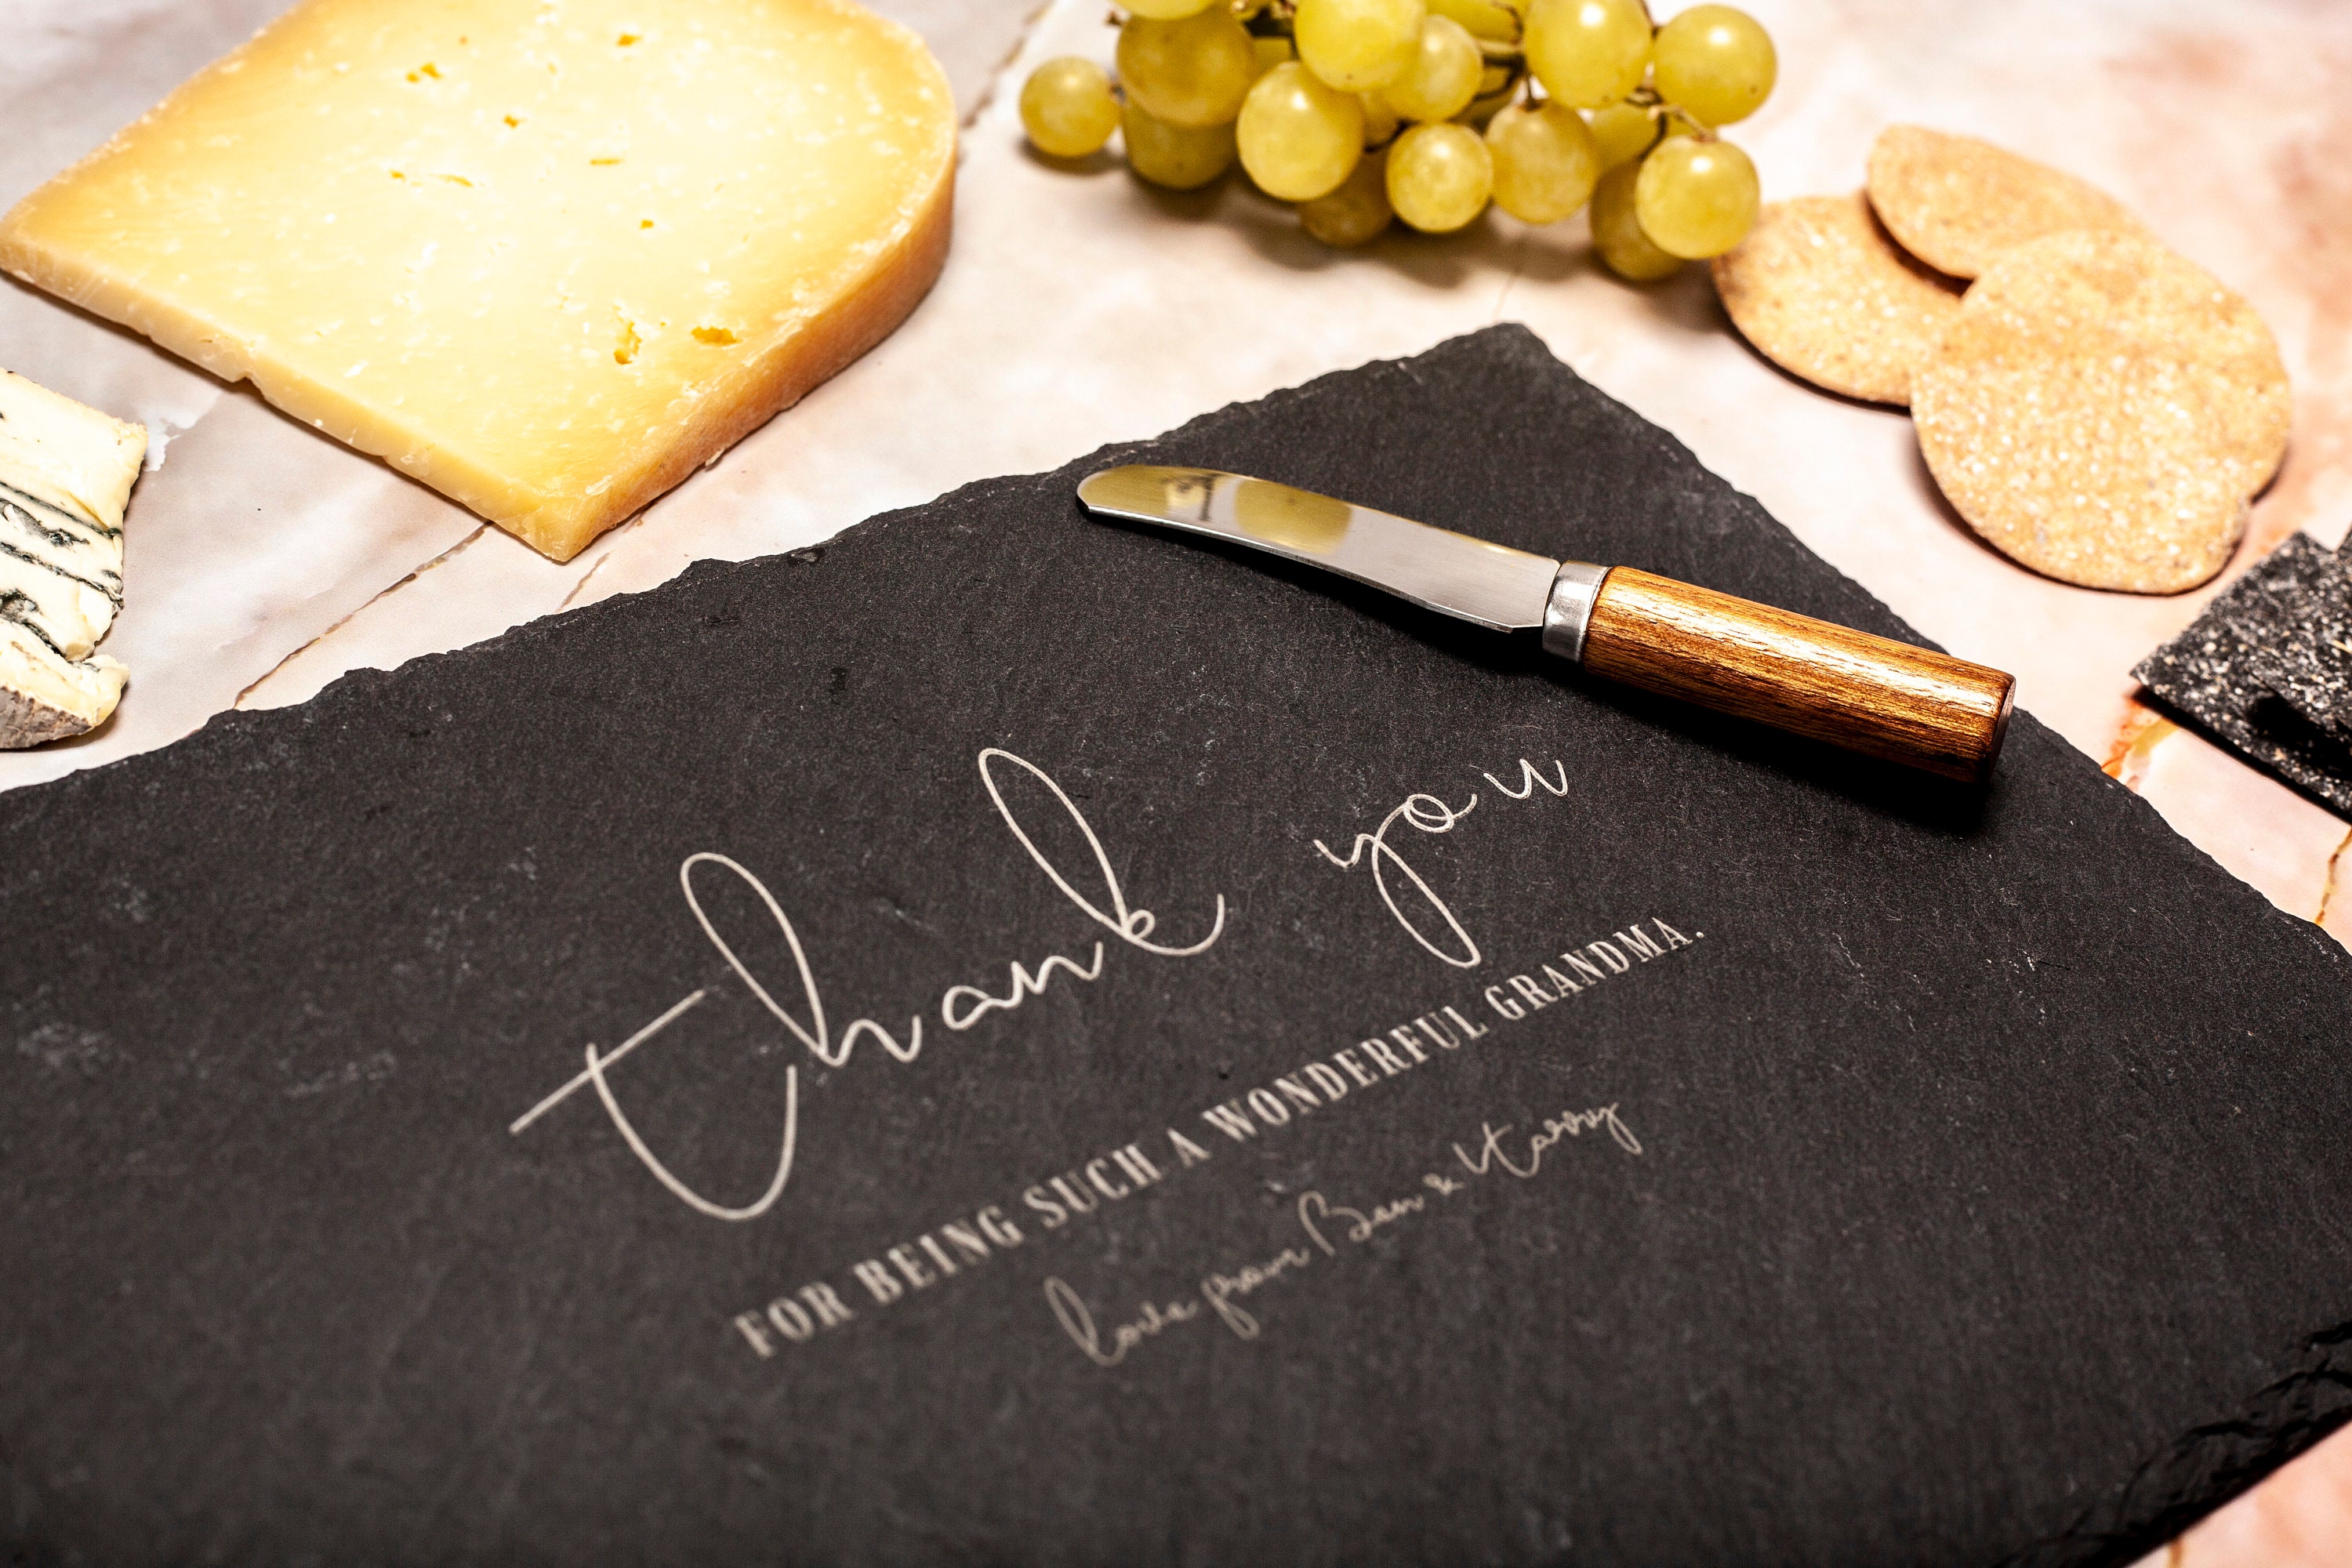 thank you
FOR BEING SUCH A WONDERFUL GRANDMA.
love from Ben & Harry